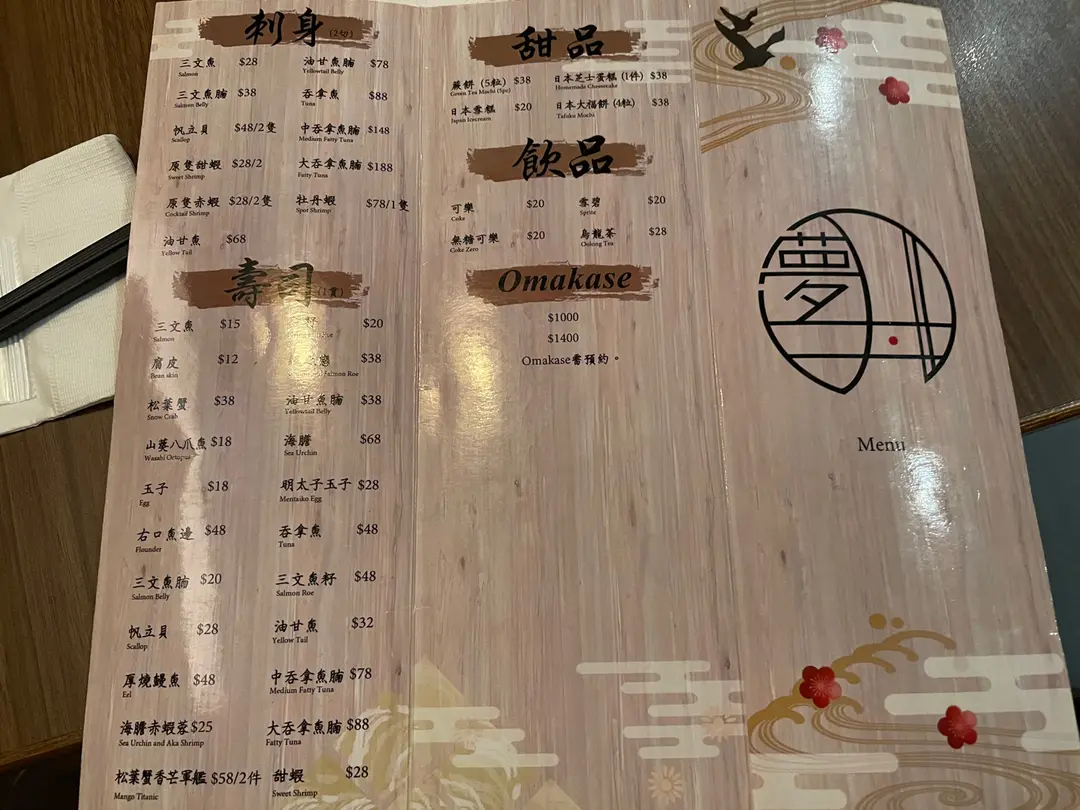 刺身 (2切)
三文魚 $28
Salmon
油甘魚腩 $78
Yellowtail Belly
三文魚腩 $38
Salmon Belly
吞拿魚 $88
Tuna
帆立貝 $48/2隻
Scallop
中吞拿魚腩 $148
Medium Fatty Tuna
原隻甜蝦 $28/2
Sweet Shrimp
大吞拿魚腩 $188
Fatty Tuna
原隻赤蝦 $28/2隻
Cocktail Shrimp
牡丹蝦 $78/1隻
Spot Shrimp
油甘魚 $68
Yellow Tail
壽司 (1貫)
三文魚 $15
Salmon
籽 $20
腐皮 $12
Bean skin
$38
Salmon Roe
松葉蟹 $38
Snow Crab
油甘魚腩 $38
Yellowtail Belly
山葵八爪魚 $18
Wasabi Octupus
海膽 $68
Sea Urchin
玉子 $18
Egg
明太子玉子 $28
Mentaiko Egg
右口魚邊 $48
Flounder
吞拿魚 $48
Tuna
三文魚腩 $20
Salmon Belly
三文魚籽 $48
Salmon Roe
帆立貝 $28
Scallop
油甘魚 $32
Yellow Tail
厚燒鰻魚 $48
Eel
中吞拿魚腩 $78
Medium Fatty Tuna
海膽赤蝦蓉 $25
Sea Urchin and Aka Shrimp
大吞拿魚腩 $88
Fatty Tuna
松葉蟹香芒軍艦 $58/2件
Mango Titanic
甜蝦 $28
Sweet Shrimp
甜品
蕨餅 (5粒) $38
Green Tea Mochi (5pc)
日本芝士蛋糕 (1件) $38
Homemade Cheesecake
日本雪糕 $20
Japan Icecream
日本大福餅 (4粒) $38
Tafuku Mochi
飲品
可樂 $20
Coke
雪碧 $20
Sprite
無糖可樂 $20
Coke Zero
烏龍茶 $28
Oolong Tea
Omakase
$1000
$1400
Omakase需預約。
夢
Menu